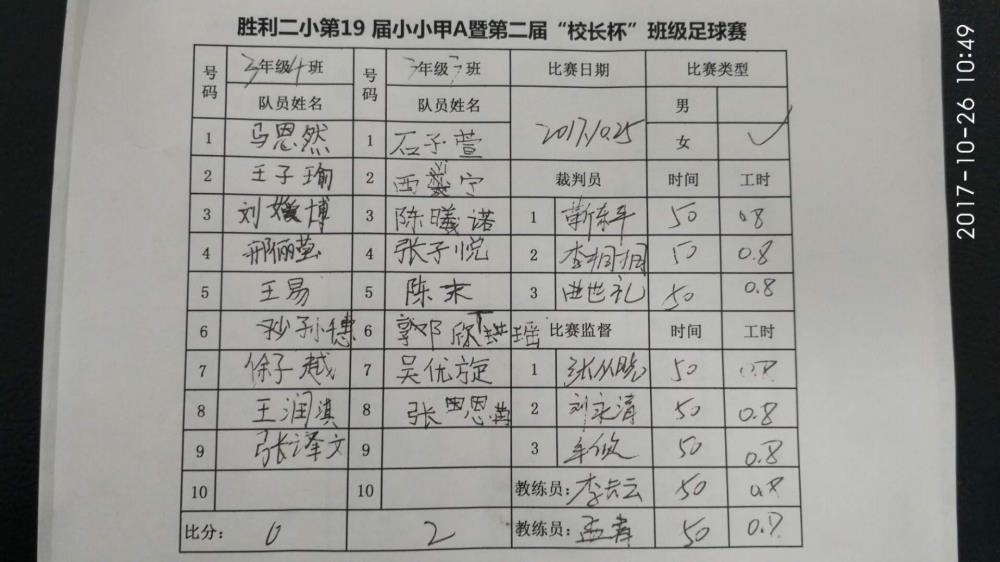 胜利二小第19 届小小甲A暨第二届“校长杯”班级足球赛
号码 3年级4班 号码 3年级3班 比赛日期 比赛类型
队员姓名 队员姓名 2017.10.25 男
1 马恩然 1 石子萱 女 ✓
2 王子瑜 2 西 宁 裁判员 时间 工时
3 刘媛博 3 陈曦诺 1 靳东平 50 0.8
4 邢俪莹 4 张子悦 2 李栩栩 50 0.8
5 王易 5 陈末 3 曲世礼 50 0.8
6 孙穗 6 郭邓欣 瑶 比赛监督 时间 工时
7 徐子越 7 吴优旋 1 张从晓 50 0.8
8 王润淇 8 张 恩 2 刘永清 50 0.8
9 张译文 9 3 50 0.8
10 10 教练员：李云 50 0.8
比分： 0 2 教练员：孟 50 0.8
2017-10-26 10:49